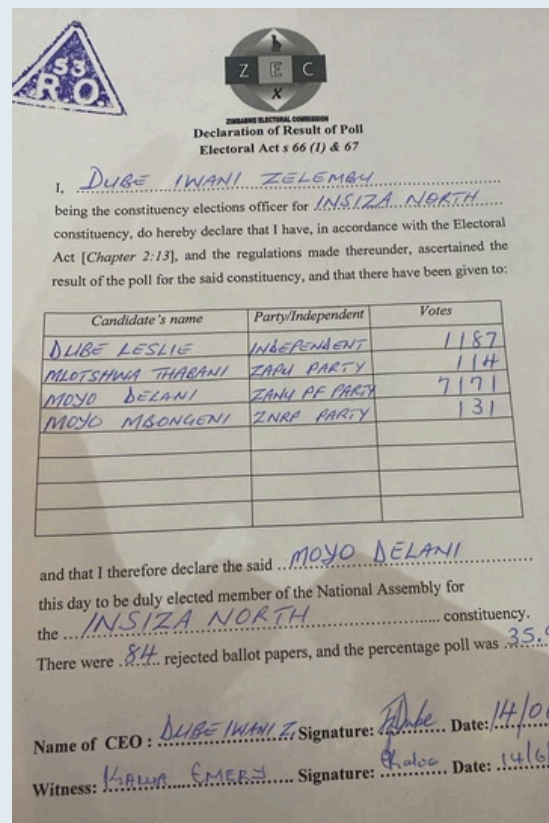 S3
R.O.
Z E C
X
ZIMBABWE ELECTORAL COMMISSION
Declaration of Result of Poll
Electoral Act s 66 (1) & 67
I, DUBE IWANI ZELEMBU
being the constituency elections officer for INSIZA NORTH
constituency, do hereby declare that I have, in accordance with the Electoral
Act [Chapter 2:13], and the regulations made thereunder, ascertained the
result of the poll for the said constituency, and that there have been given to:
Candidate's name Party/Independent Votes
DUBE LESLIE INDEPENDENT 1187
MLOTSHWA THABANI ZAPU PARTY 114
MOYO DELANI ZANU PF PARTY 7171
MOYO MBONGENI ZNRP PARTY 131
and that I therefore declare the said MOYO DELANI
this day to be duly elected member of the National Assembly for
the INSIZA NORTH constituency.
There were 84 rejected ballot papers, and the percentage poll was 35.9
Name of CEO : DUBE IWANI Z. Signature: Dube Date: 14/0
Witness: EMERY Signature: Date: 14/6